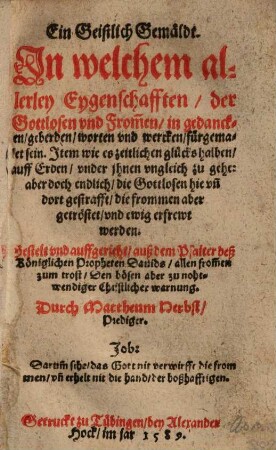 Ein Geistlich Gemäldt.
In welchem al-
lerley Eygenschafften / der
Gottlosen vnd From̃en / in gedanck-
en / geberden / worten vnd wercken / fürgema-
let sein. Item wie es zeitlichen glücks halben /
auff Erden / vnder jhnen vngleich zu gehe:
aber doch endlich / die Gottlosen hie vñ
dort gestrafft / die frommen aber
getröstet / vnd ewig erfrewt
werden.
Gestelt vnd auffgericht / auß dem Psalter deß
Königlichen Propheten Dauids / allen from̃en
zum trost / Den bösen aber zu noht-
wendiger Christlicher warnung.
Durch Mattheum Herbst /
Prediger.
Job:
Darum̃ sihe / das Gott nit verwirfft die from
men / vñ erhelt nit die hand / der boßhafftigen.
Getruckt zu Tübingen / bey Alexander
Hock / im jar 1589.